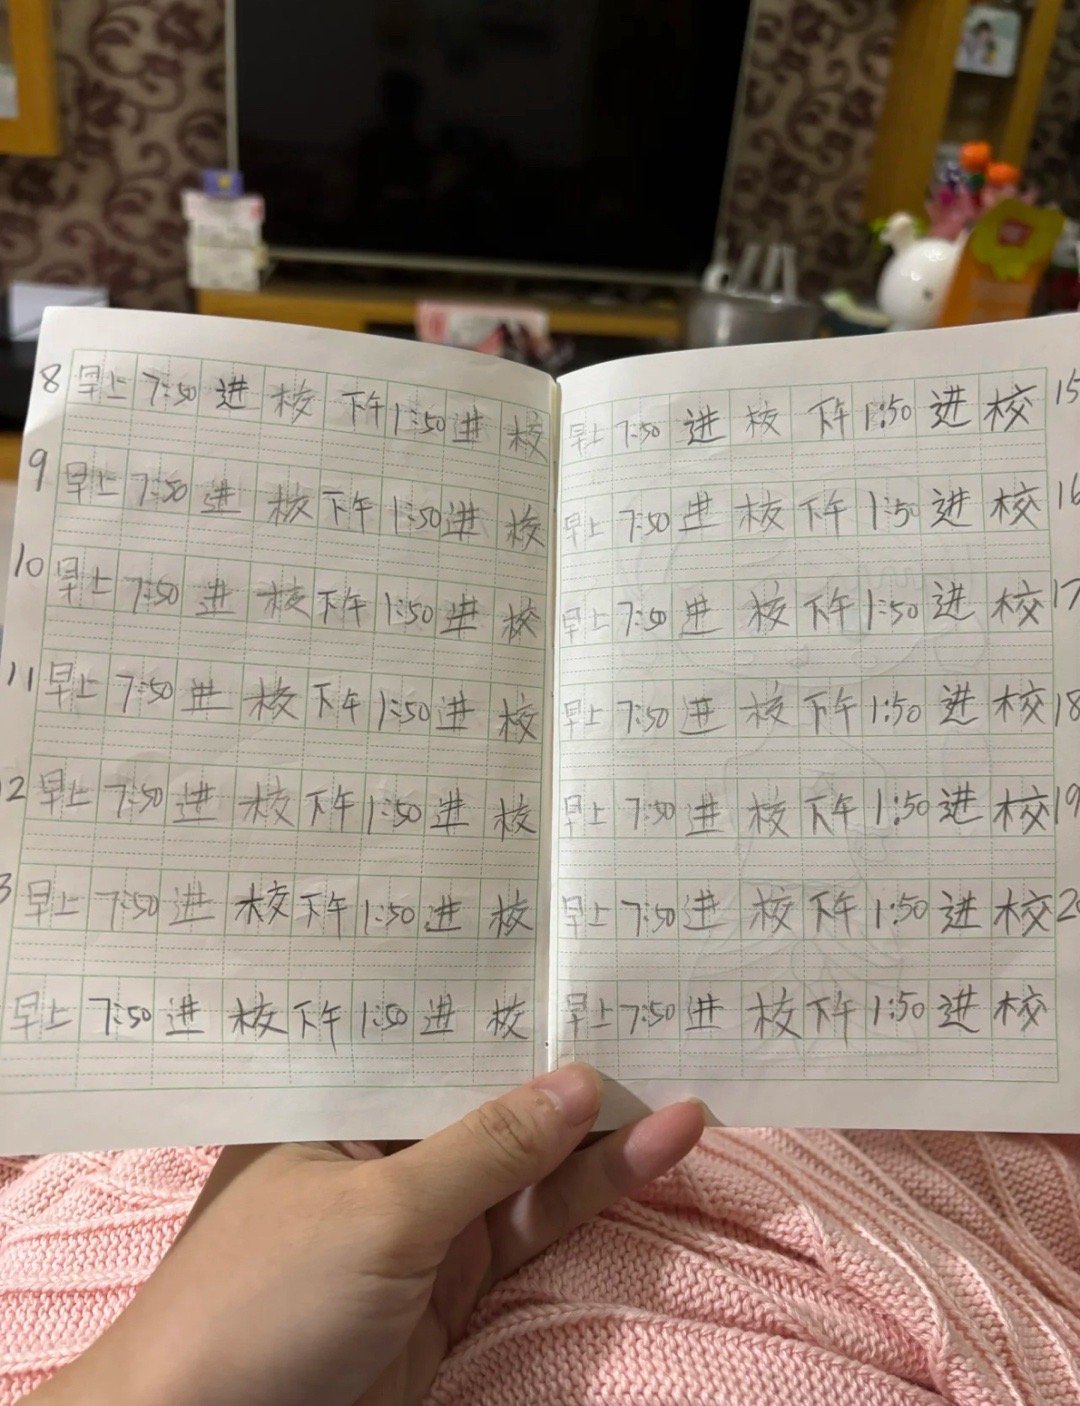 8 早上 7:50 进 校 下午 1:50 进 校
9 早上 7:50 进 校 下午 1:50 进 校
10 早上 7:50 进 校 下午 1:50 进 校
11 早上 7:50 进 校 下午 1:50 进 校
12 早上 7:50 进 校 下午 1:50 进 校
3 早上 7:50 进 校 下午 1:50 进 校
早上 7:50 进 校 下午 1:50 进 校
早上 7:50 进 校 下午 1:50 进 校 15
早上 7:50 进 校 下午 1:50 进 校 16
早上 7:50 进 校 下午 1:50 进 校 17
早上 7:50 进 校 下午 1:50 进 校 18
早上 7:50 进 校 下午 1:50 进 校 19
早上 7:50 进 校 下午 1:50 进 校 20
早上 7:50 进 校 下午 1:50 进 校